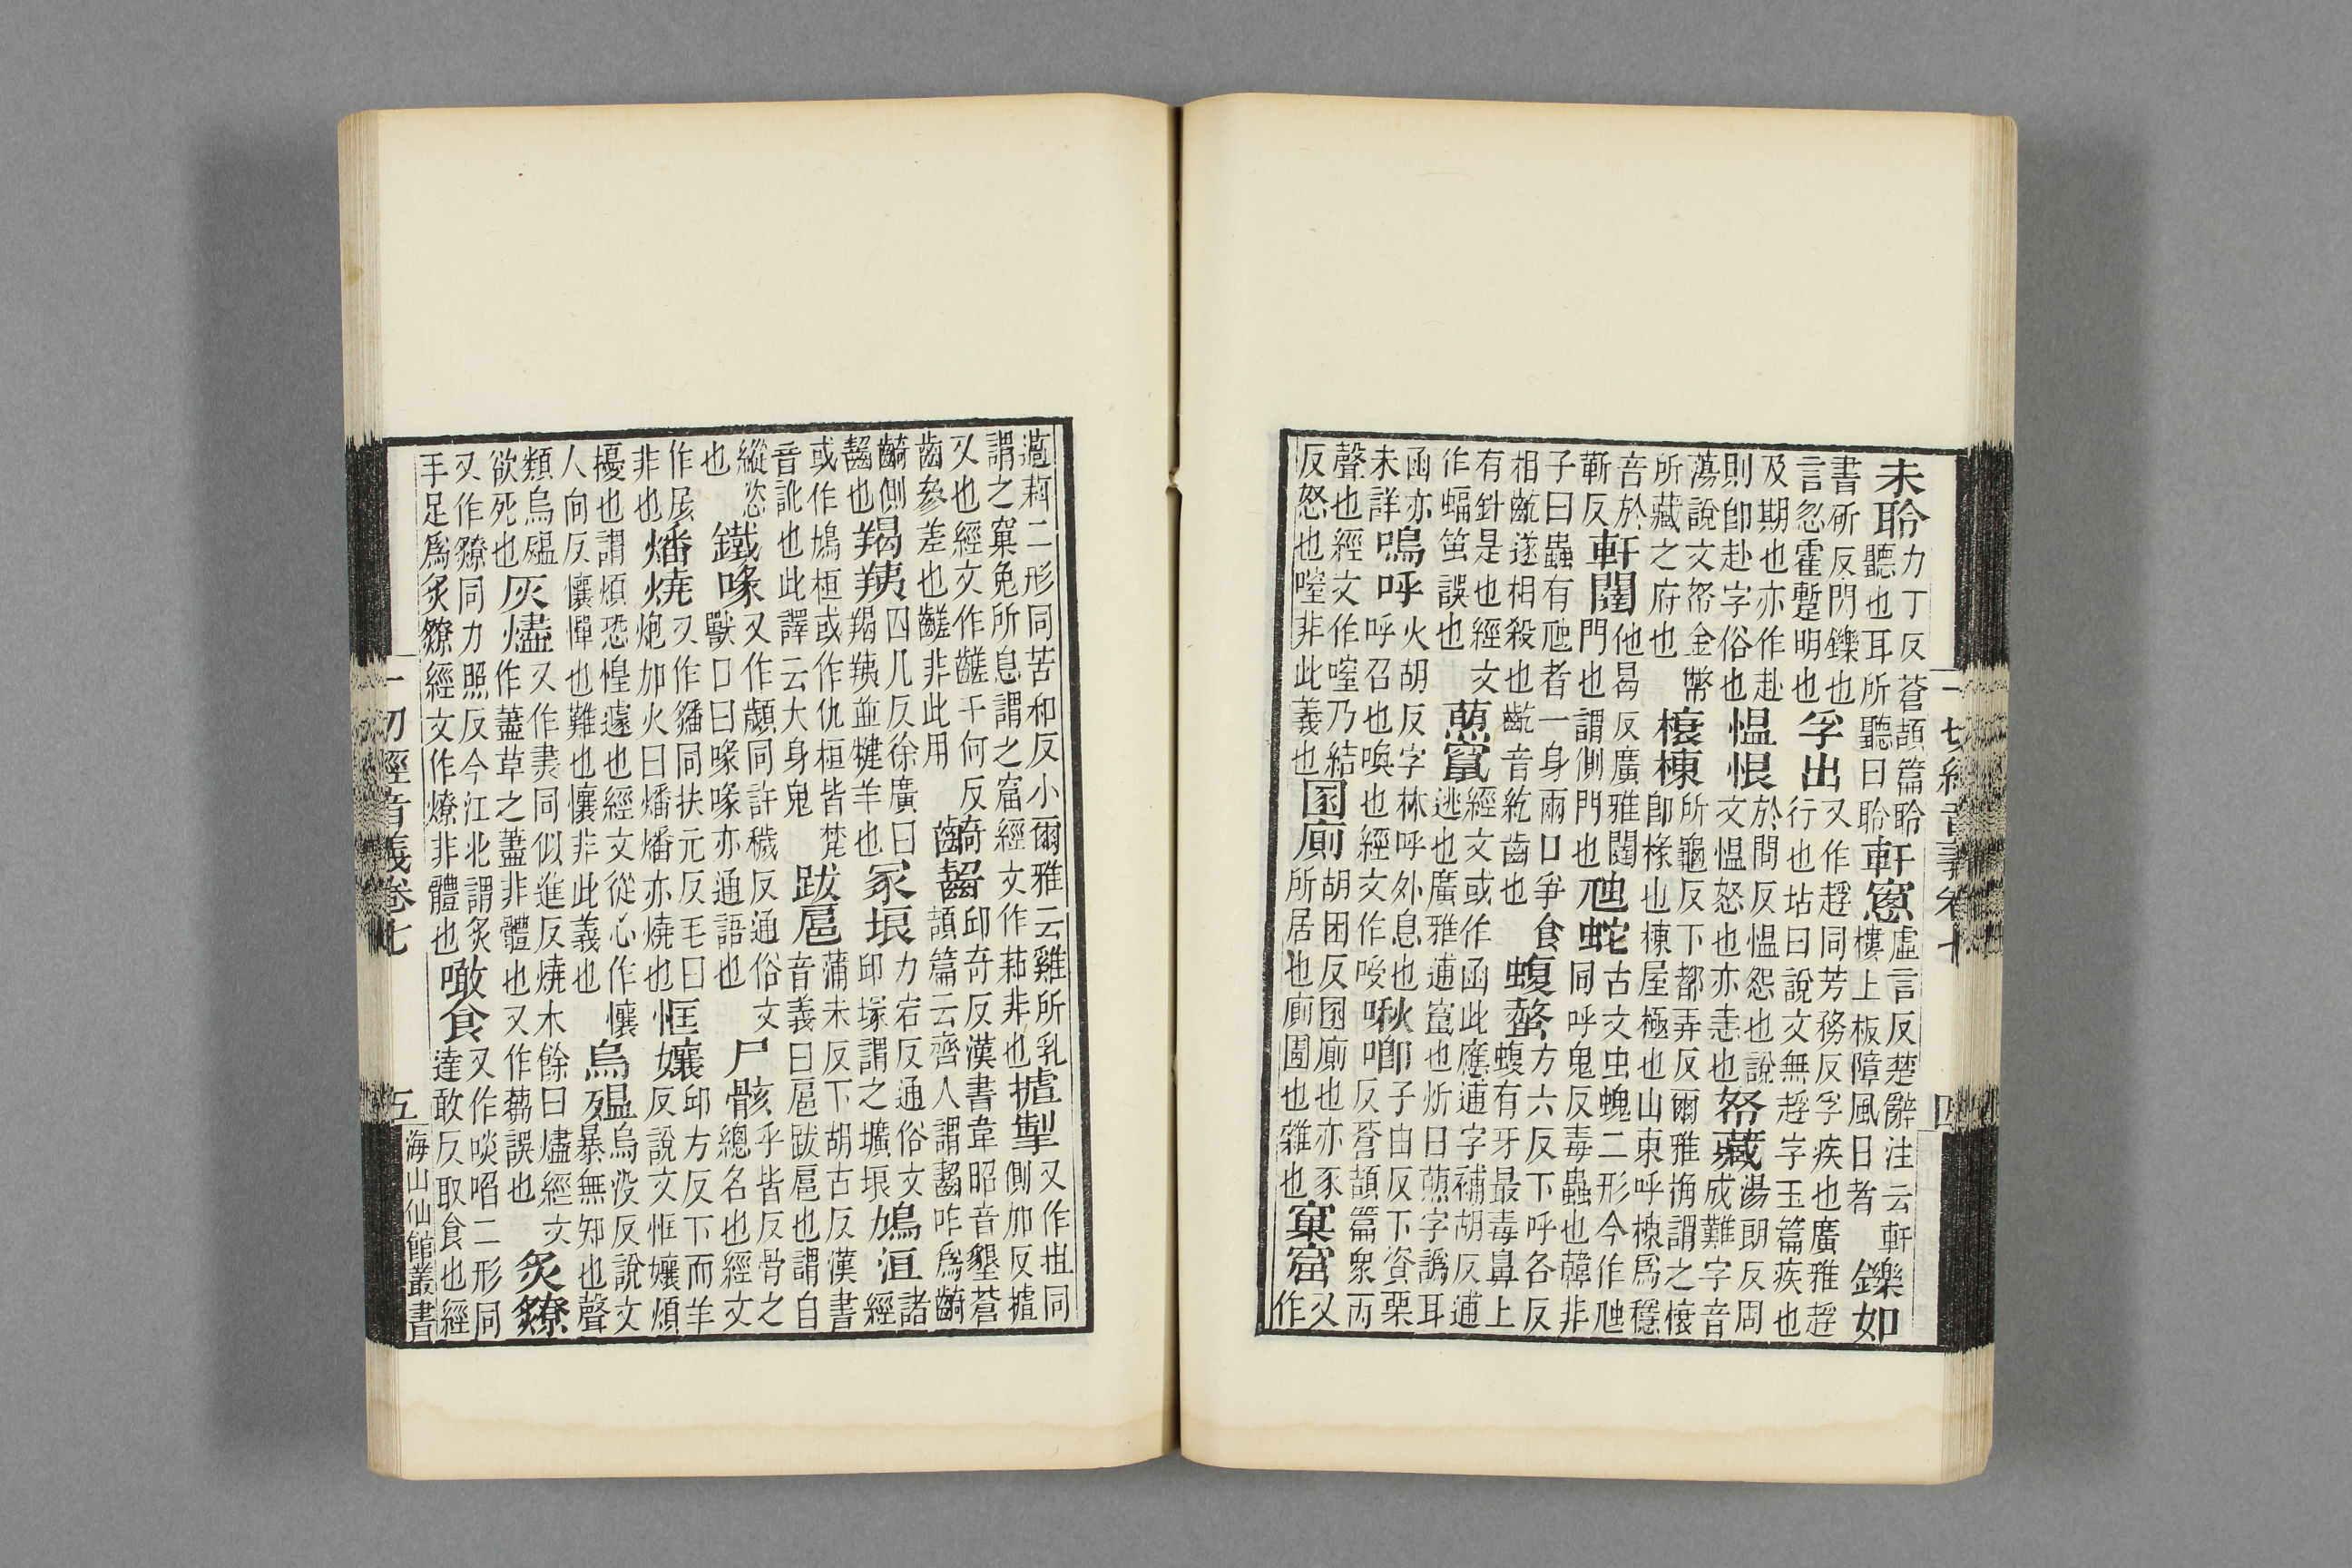 一切經音義卷七
四
未聆力丁反蒼頡篇聆聽也耳所聽曰聆軒窻虛言反楚辭注云軒樓上板障風日者鑠如
書斫反門鑠也言忽霍蹔明也孚出又作同芳務反孚疾也廣雅行也坫曰說文無字玉篇疾也
及期也亦作赴則卽赴字俗也慍恨於問反慍怨也說文慍怒也亦恚也帑藏湯朗反周成難字音
蕩說文帑金幣所藏之府也榱棟所龜反下都弄反爾雅桷謂之榱卽椽也棟屋極也山東呼棟爲穩
音於靳反軒闥他曷反廣雅闥門也謂側門也虺蛇古文虫螝二形今作虺同呼鬼反毒蟲也韓非
子曰蟲有虺者一身兩口爭食相齕遂相殺也齕音紇齒也蝮螫方六反下呼各反蝮有牙最毒鼻上
有針是也經文作蝠誤也竄經文或作函此應逋字補胡反逋逃也廣雅逋竄也炘曰字譌耳
函亦未詳鳴呼火胡反字林呼外息也呼召也喚也經文作啾喞子由反下資栗反蒼頡篇衆而
聲也經文作乃結反怒也非此義也圂廁胡困反圂廁也亦豕所居也廁圊也雜也窠窟又作
薖萪二形同苦和反小爾雅云雞所乳謂之窠兔所息謂之窟經文作非也摣掣又作担同側加反摣
叉也經文作齹千何反齒參差也齹非此用齮齧丘奇反漢書韋昭音墾蒼頡篇云齊人謂齧咋爲齮
齮側齧也羯羠四几反徐廣曰羯羠並犍羊也冢埌力宕反通俗文丘塚謂之壙埌鳩洹諸經
或作鳩桓或作仇桓皆梵音訛也此譯云大身鬼跋扈蒲末反下胡古反漢書音義曰扈跋扈也謂自
縱恣也鐵喙又作顪同許穢反通俗文獸口曰喙喙亦通語也尸骸乎皆反骨之總名也經文
作非也燔燒又作同扶元反毛曰炮加火曰燔燔亦燒也恇孃丘方反下而羊反說文恇孃煩
擾也謂煩恐惶遽也經文從心作懹人向反懹憚也難也懹非此義也烏殟烏没反說文暴無知也聲
類烏殟欲死也灰燼又作同似進反燒木餘曰燼經文作藎草之藎非體也又作誤也炙爒
又作同力照反今江北謂炙手足爲炙爒經文作燎非體也噉食又作啖啗二形同達敢反取食也經
一切經音義卷七
五
海山仙館叢書